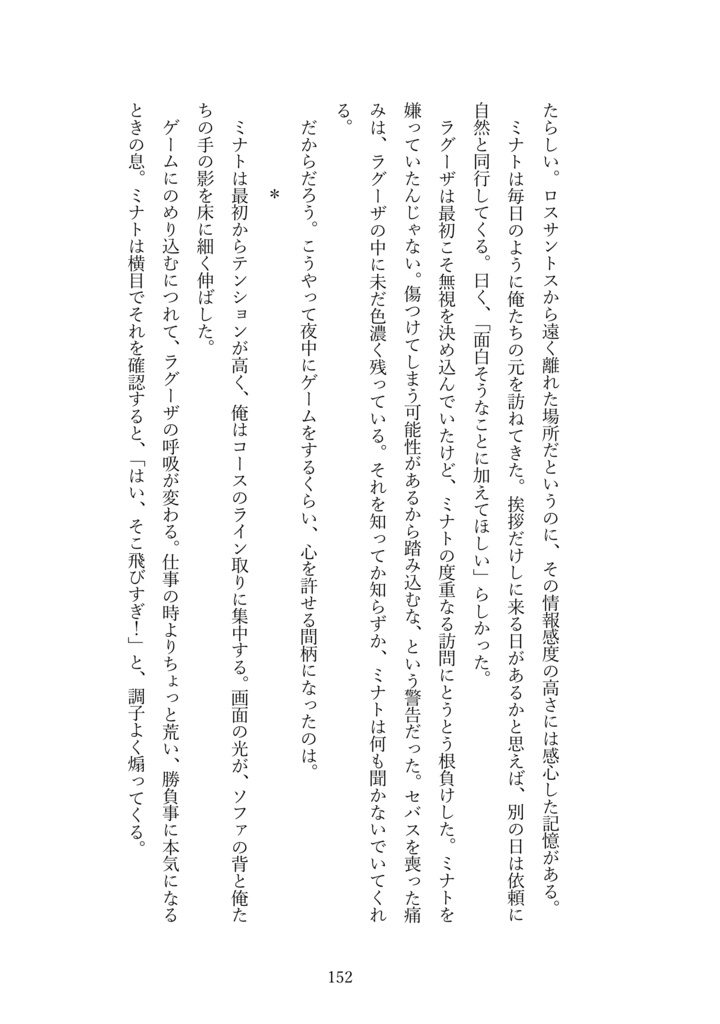 たらしい。ロスサントスから遠く離れた場所だというのに、その情報感度の高さには感心した記憶がある。
　ミナトは毎日のように俺たちの元を訪ねてきた。挨拶だけしに来る日があるかと思えば、別の日は依頼に
自然と同行してくる。曰く、「面白そうなことに加えてほしい」らしかった。
　ラグーザは最初こそ無視を決め込んでいたけど、ミナトの度重なる訪問にとうとう根負けした。ミナトを
嫌っていたんじゃない。傷つけてしまう可能性があるから踏み込むな、という警告だった。セバスを喪った痛
みは、ラグーザの中に未だ色濃く残っている。それを知ってか知らずか、ミナトは何も聞かないでいてくれ
る。
　だからだろう。こうやって夜中にゲームをするくらい、心を許せる間柄になったのは。
＊
　ミナトは最初からテンションが高く、俺はコースのライン取りに集中する。画面の光が、ソファの背と俺た
ちの手の影を床に細く伸ばした。
　ゲームにのめり込むにつれて、ラグーザの呼吸が変わる。仕事の時よりちょっと荒い、勝負事に本気になる
ときの息。ミナトは横目でそれを確認すると、「はい、そこ飛びすぎ！」と、調子よく煽ってくる。
152